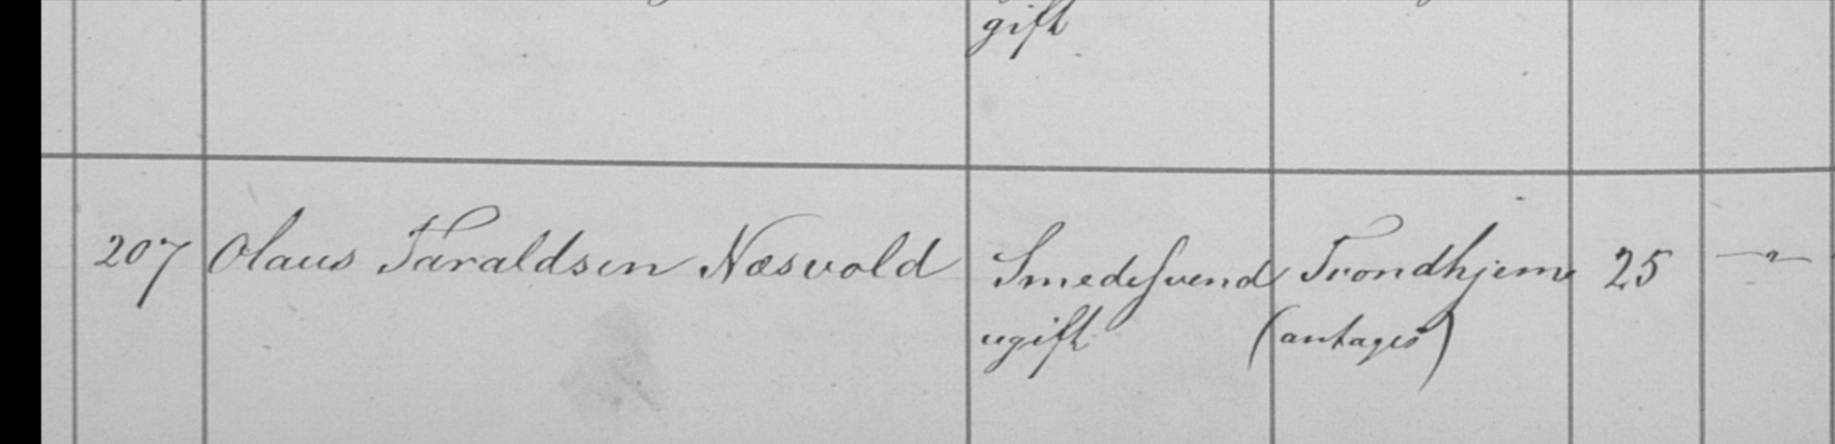 gift
207 Olaus Taraldsen Næsvold Smedesvend Trondhjem 25 — " —
ugift (antages)